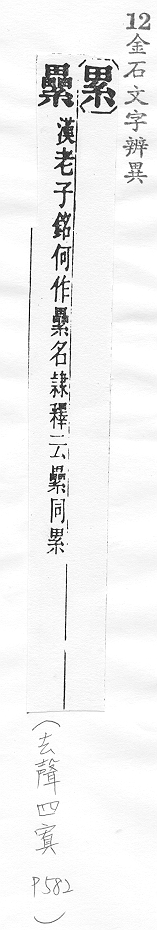 12金石文字辨異
(累)
纍 漢老子銘何作纍名隷釋云纍同累
(去聲四寘 P582)